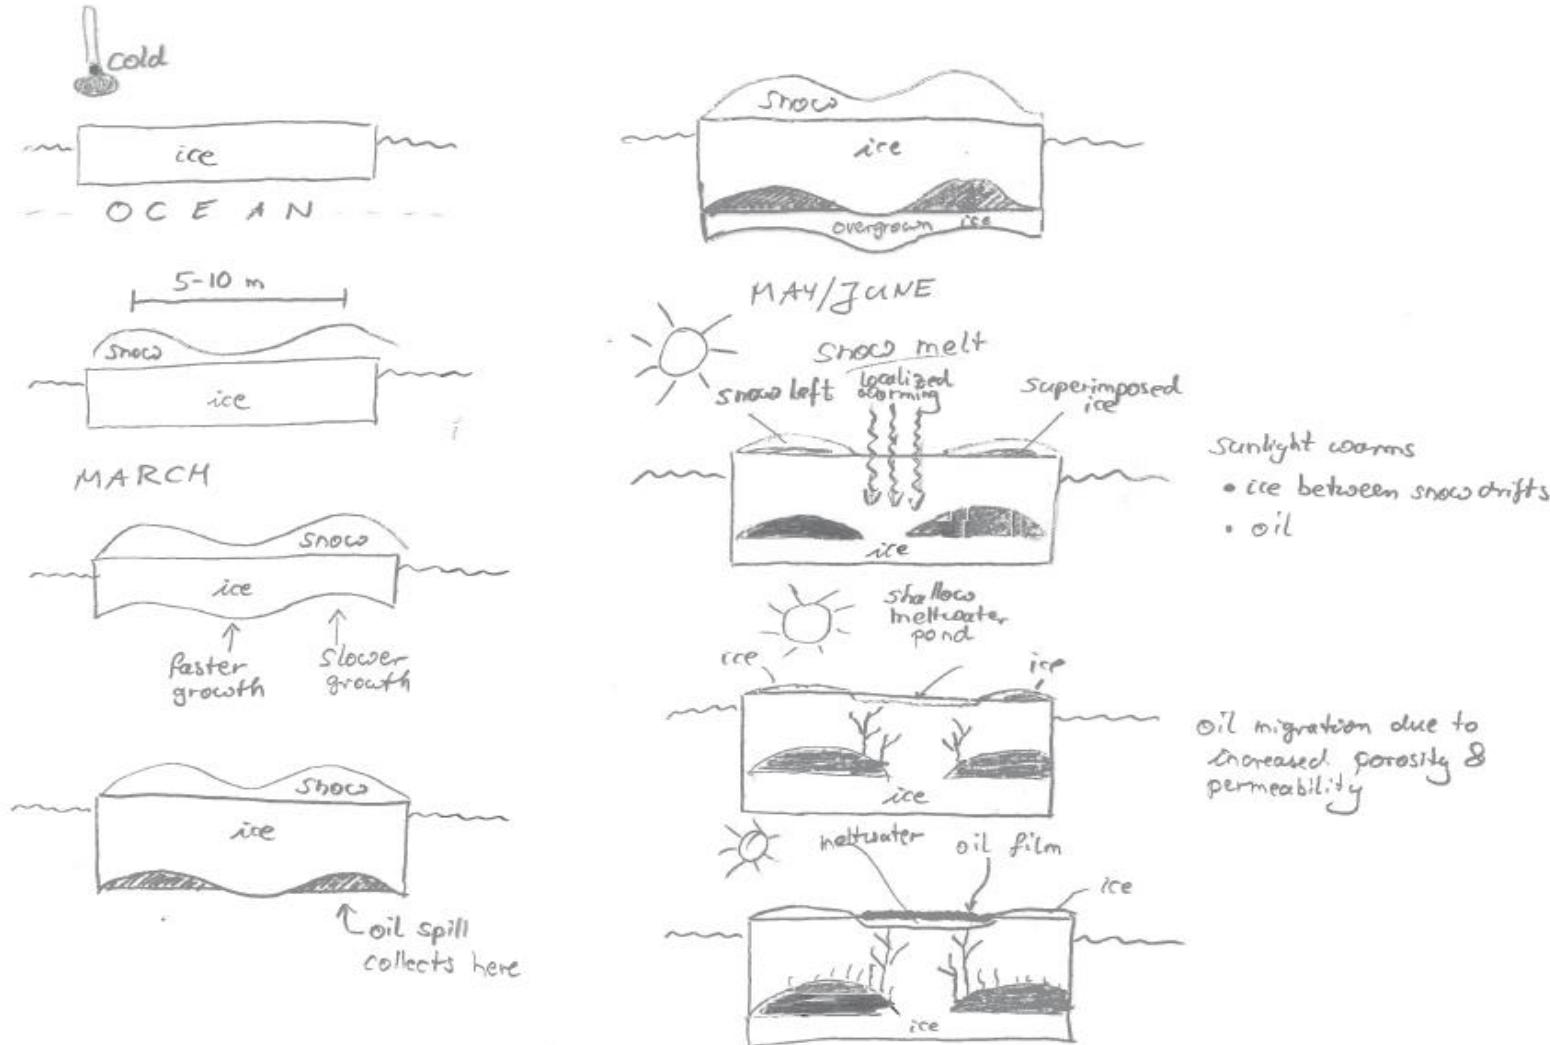 cold
ice
OCEAN
5-10 m
snow
ice
MARCH
snow
ice
faster
growth
slower
growth
snow
ice
oil spill
collects here
snow
ice
overgrown ice
MAY/JUNE
snow melt
snow left
localized
warming
superimposed
ice
ice
sunlight warms
• ice between snow drifts
• oil
shallow
meltwater
pond
ice
ice
ice
oil migration due to
increased porosity &
permeability
meltwater
oil film
ice
ice